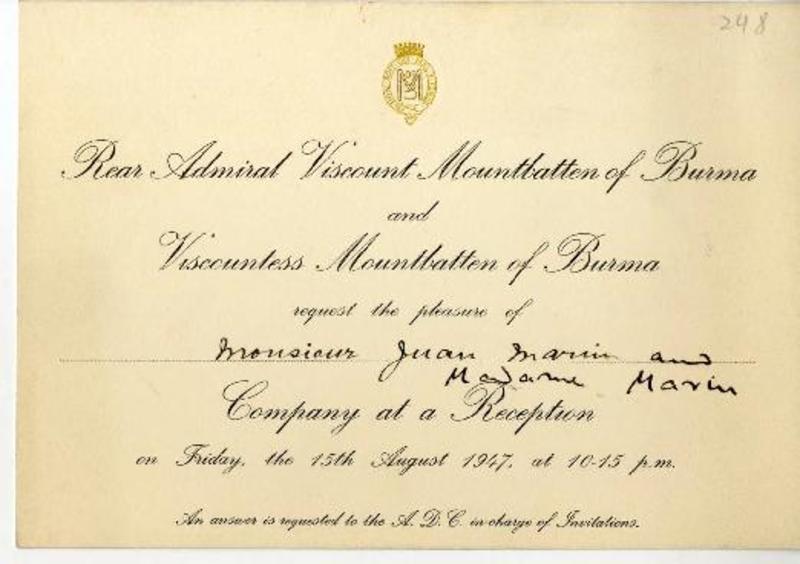 248
Rear Admiral Viscount Mountbatten of Burma
and
Viscountess Mountbatten of Burma
request the pleasure of
Monsieur Juan Marin and
Madame Marin
Company at a Reception
on Friday, the 15th August 1947, at 10-15 p.m.
An answer is requested to the A. D. C. in-charge of Invitations.